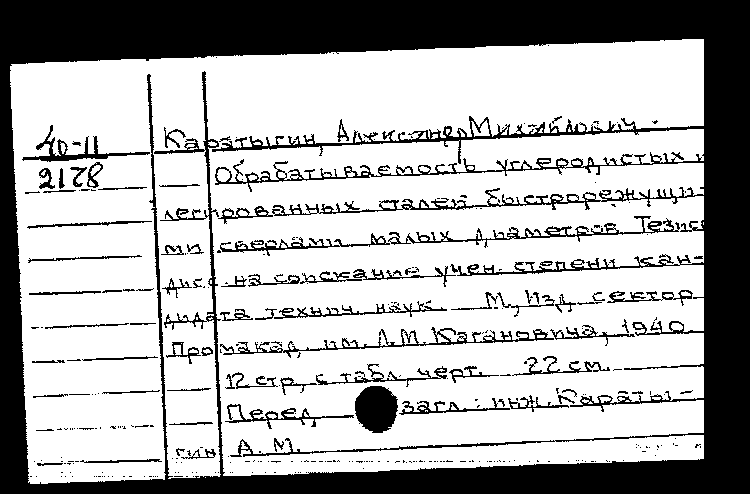 40-11
2178
Каратыгин, Александр Михайлович.
Обрабатываемость углеродистых и
легированных сталей быстрорежущи-
ми сверлами малых диаметров Тезисы
дисс. на соискание учен. степени кан-
дидата технич. наук. М., Изд. сектор
Промакад. им. Л.М. Кагановича, 1940.
12 стр, с табл, черт. 22 см.
Перед загл.: инж. Караты-
гин А.М.